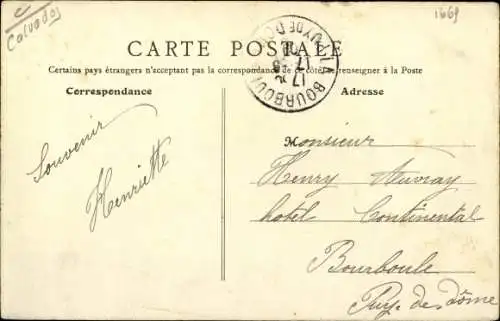 C
Calvados
1669
CARTE POSTALE
LA BOURBOULE
PUY DE DOME
17
Certains pays étrangers n'acceptant pas la correspondance de ce côté, se renseigner à la Poste
Correspondance
Adresse
Souvenir
Henriette
Monsieur
Henry Auvray
hotel Continental
Bourboule
Puy-de-dôme